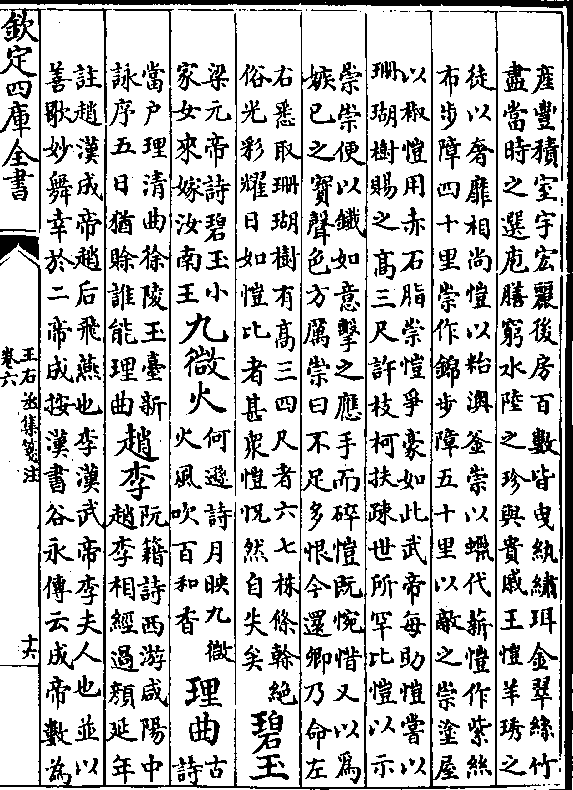 產豐積室宇宏麗後房百數皆曳紈繡珥金翠絲竹
盡當時之選庖膳窮水陸之珍與貴戚王愷羊琇之
徒以奢靡相尚愷以粘澳釜崇以蠟代薪愷作紫絲
布步障四十里崇作錦步障五十里以敵之崇塗屋
以椒愷用赤石脂崇愷爭豪如此武帝每助愷嘗以
珊瑚樹賜之高三尺許枝柯扶疎世所罕比愷以示
崇崇便以鐵如意擊之應手而碎愷既惋惜又以為
嫉已之寶聲色方厲崇曰不足多恨今還卿乃命左
右悉取珊瑚樹有高三四尺者六七株條榦絶
俗光彩耀日如愷比者甚衆愷怳然自失矣
碧玉
梁元帝詩碧玉小
家女來嫁汝南王
九微火
何遜詩月映九微
火風吹百和香
理曲
古
詩
當户理清曲徐陵玉臺新
詠序五日猶賒誰能理曲
趙李
阮籍詩西游咸陽中
趙李相經過顔延年
註趙漢成帝趙后飛燕也李漢武帝李夫人也並以
善歌妙舞幸於二帝成按漢書谷永傳云成帝數為
欽定四庫全書
王右丞集箋注
卷六
十六